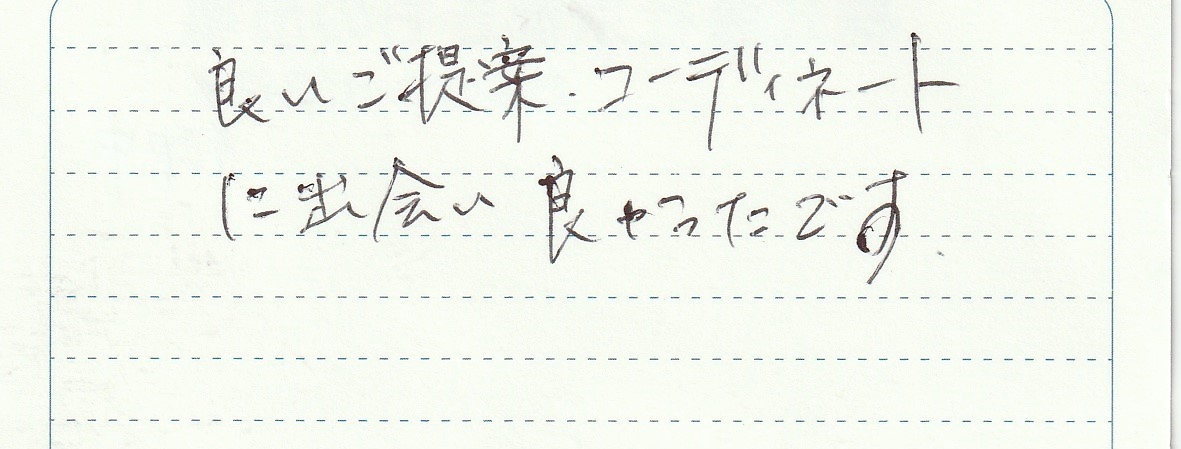 良いご提案・コーディネート
に出会い良かったです.